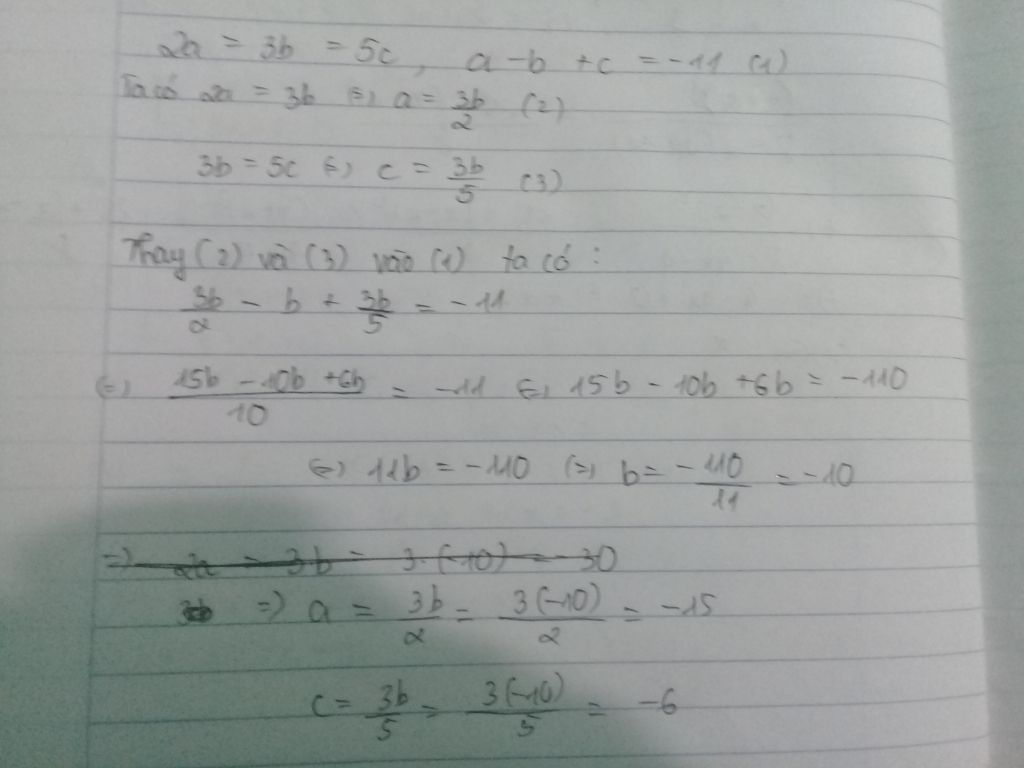 2a = 3b = 5c, a - b + c = -11 (1)
Ta có 2a = 3b (=) a = 3b/2 (2)
3b = 5c (=) c = 3b/5 (3)
Thay (2) và (3) vào (1) ta có :
3b/2 - b + 3b/5 = -11
(=) (15b - 10b + 6b)/10 = -11 (=) 15b - 10b + 6b = -110
(=) 11b = -110 (=) b = -110/11 = -10
=) 2a = 3b = 3.(-10) = -30
=) a = 3b/2 = 3(-10)/2 = -15
c = 3b/5 = 3(-10)/5 = -6